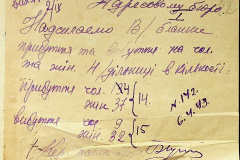 2/IX Адресовому бюро
Надсилаємо В/ бланки
прибуття та вибуття на чол.
та жін. Н/дільниці в кількості.
Прибуття чол. 84
жін. 37 14.
N. 142.
6.4.43.
вибуття чол. 9
жін. 32 15